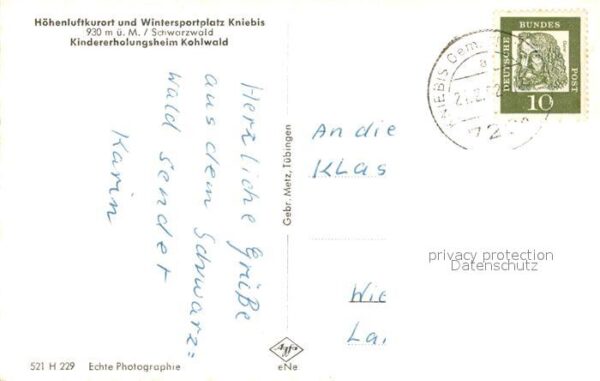 Höhenluftkurort und Wintersportplatz Kniebis
930 m ü. M. / Schwarzwald
Kindererholungsheim Kohlwald
Herzliche Grüße
aus dem Schwarz=
wald sendet
Karin
Gebr. Metz, Tübingen
DEUTSCHE
BUNDES
POST
10
KNIEBIS
An die
Klas
Wie
La
privacy protection
Datenschutz
521 H 229 Echte Photographie
Agfa
eNe